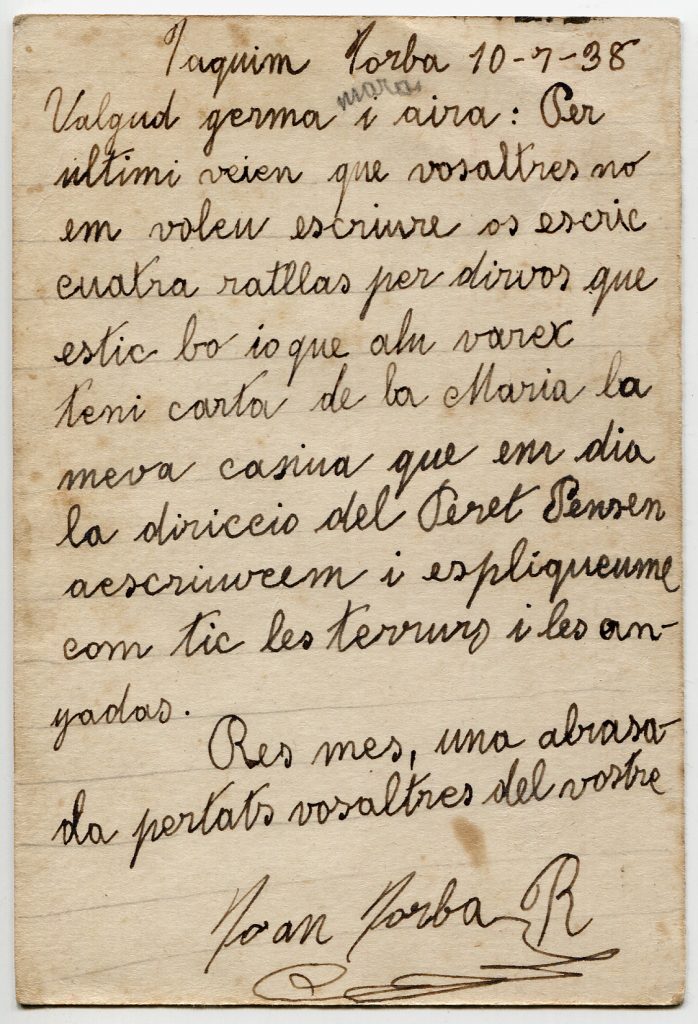 Jaquim Jorba 10-7-38
mara
Valgud germa i aira: Per
ultimi veien que vosaltres no
em voleu escriure os escric
cuatra ratllas per dirvos que
estic bo io que alu varex
teni carta de la Maria la
meva casina que em dia
la diriccio del Peret Pensen
aescriureem i espliqueume
com tic les terrurs i les an-
yadas.
Res mes, una abrasa-
da pertats vosaltres del vostre
Joan Jorba R